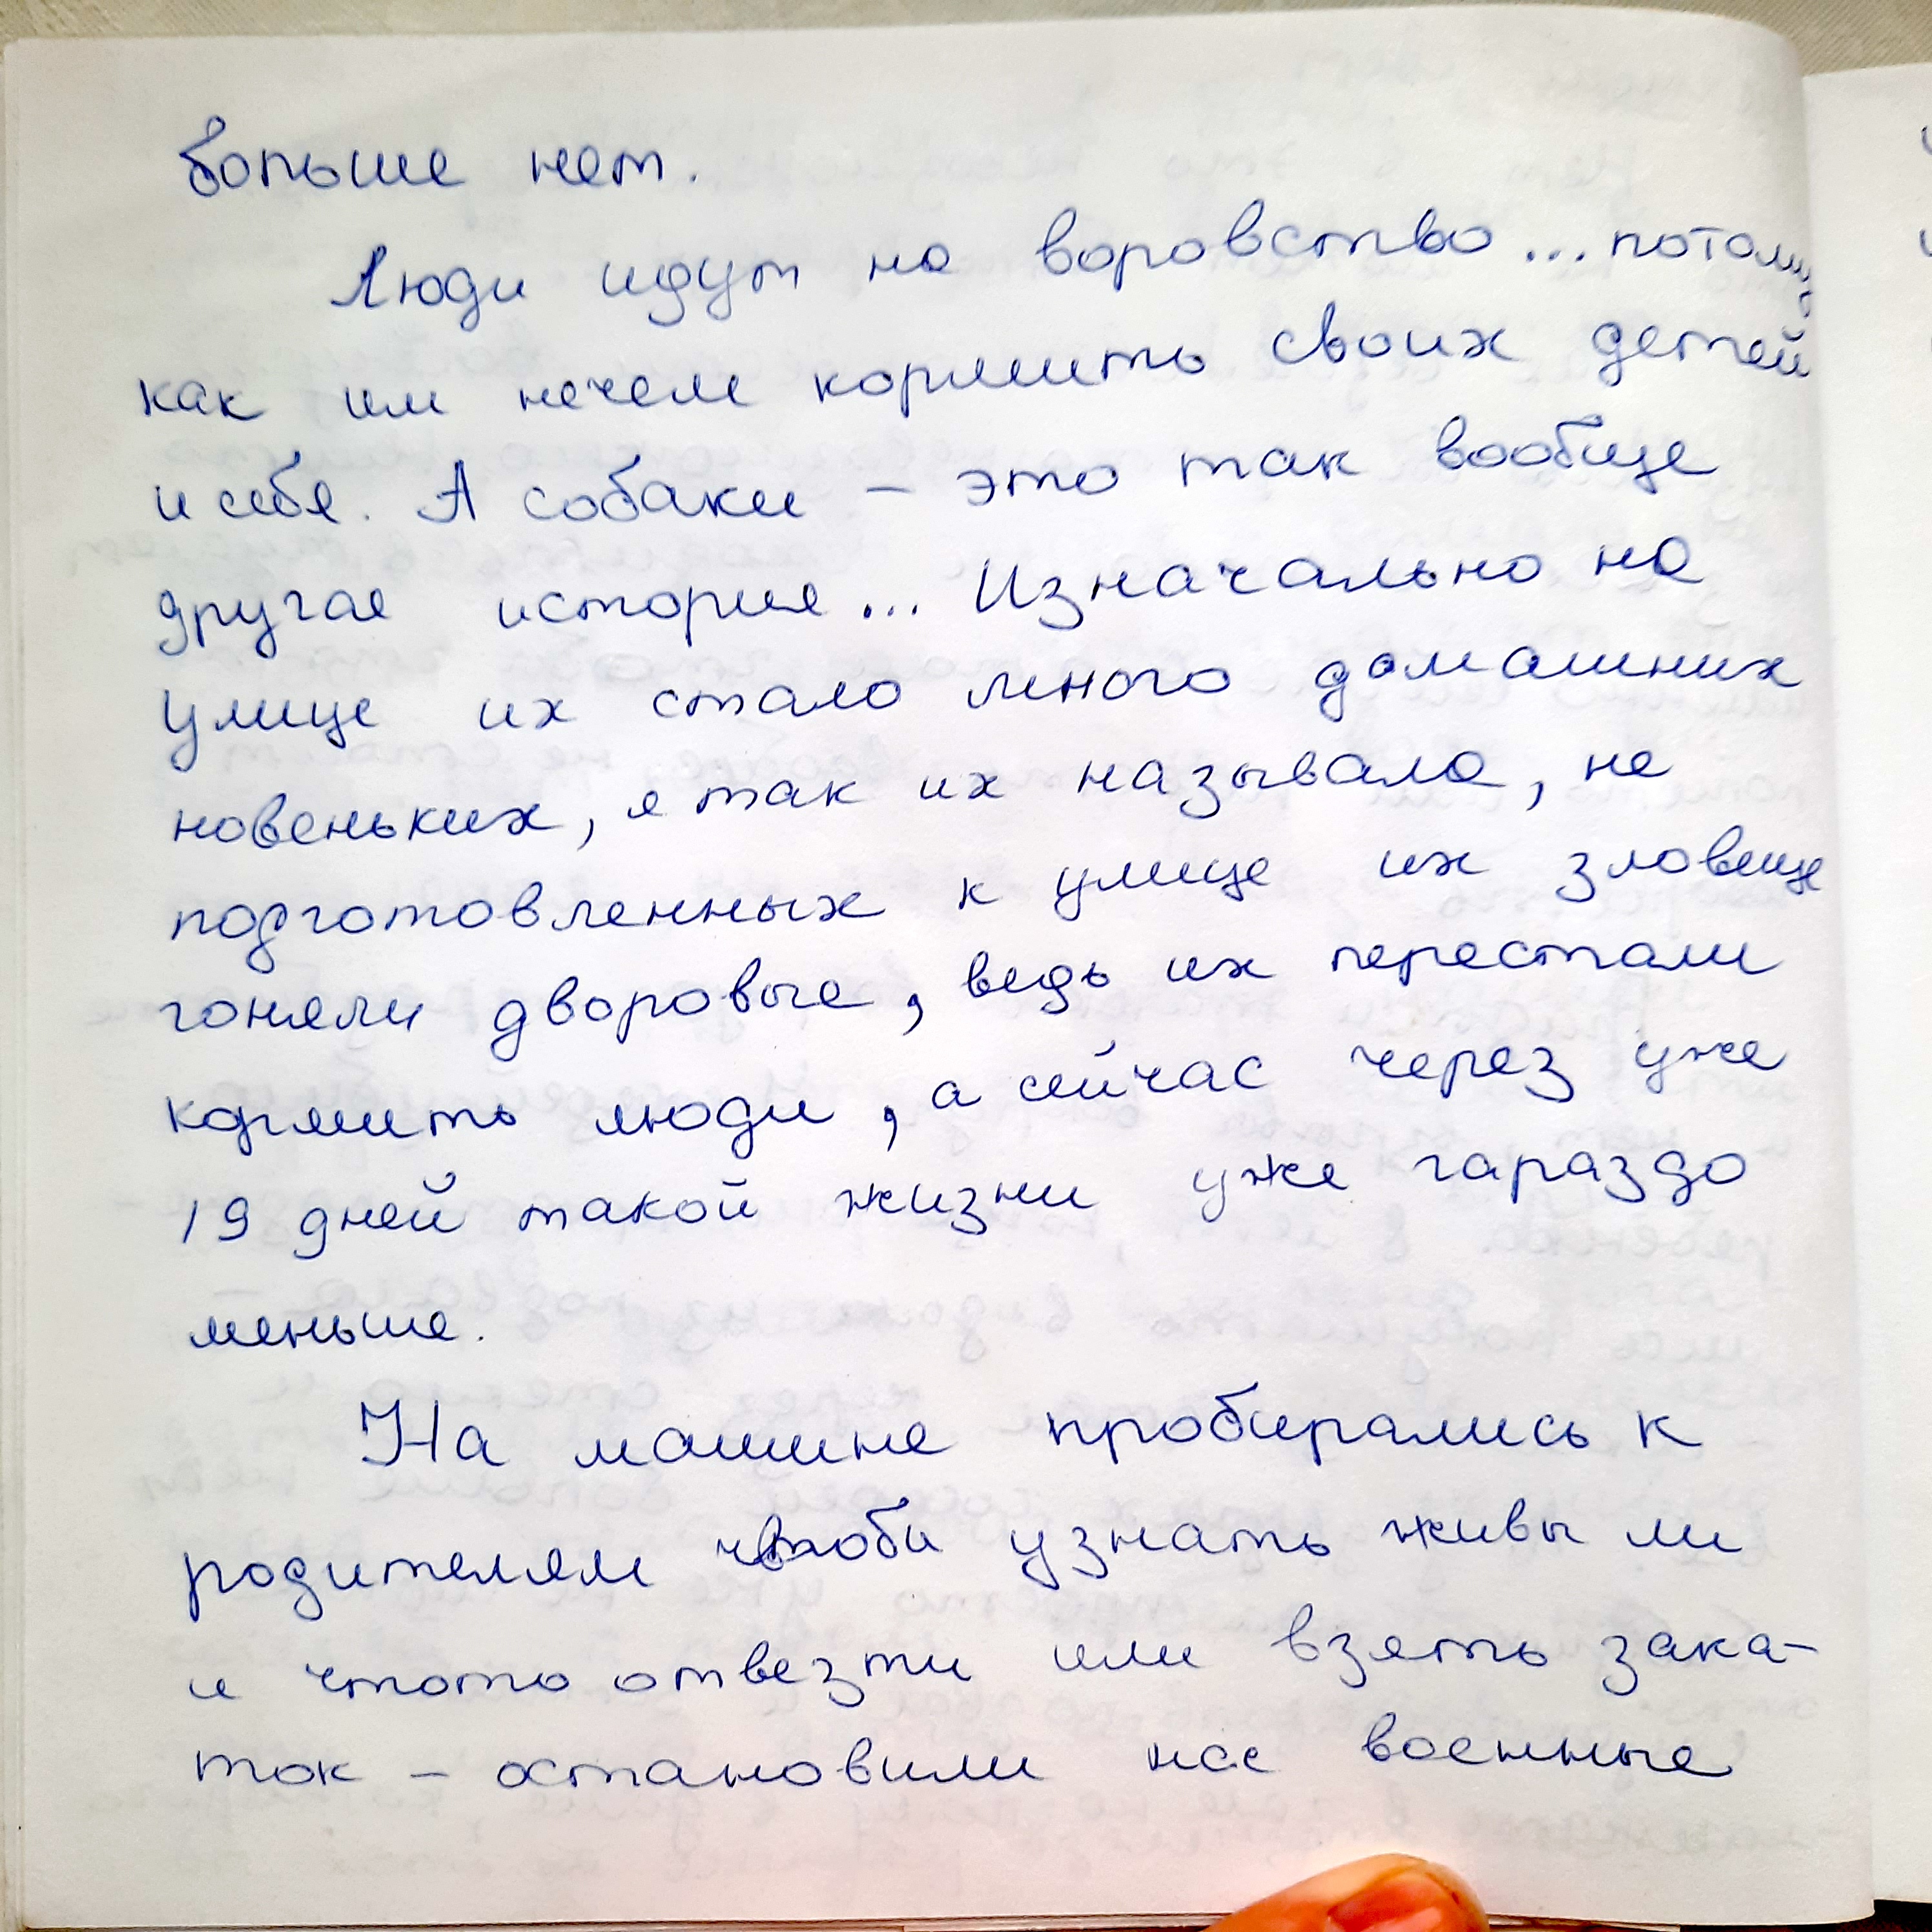 больше нет.
Люди идут на воровство... потому
как им нечем кормить своих детей
и себя. А собаки – это так вообще
другая история... Изначально на
улице их стало много домашних
новеньких, я так их называла, не
подготовленных к улице их зловеще
гоняли дворовые, ведь их перестали
кормить люди, а сейчас через уже
19 дней такой жизни уже гараздо
меньше.
На машине пробирались к
родителям чтоби узнать живы ли
и чтото отвезти или взять зака-
ток – остановили нас военные